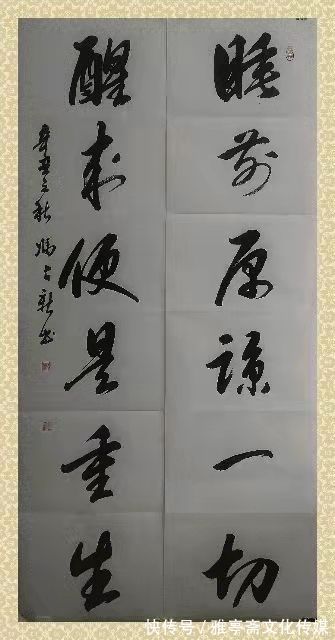 睡前原谅一切
醒来便是重生
辛丑之秋 冯占新书
快传号/雅亭斋文化传媒